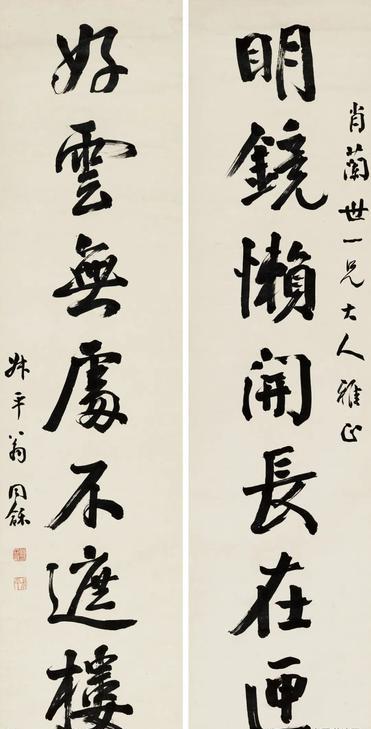 肖蘭世一兄大人雅正
明鏡懶開長在匣
好雲無處不遮樓
叔平翁同龢